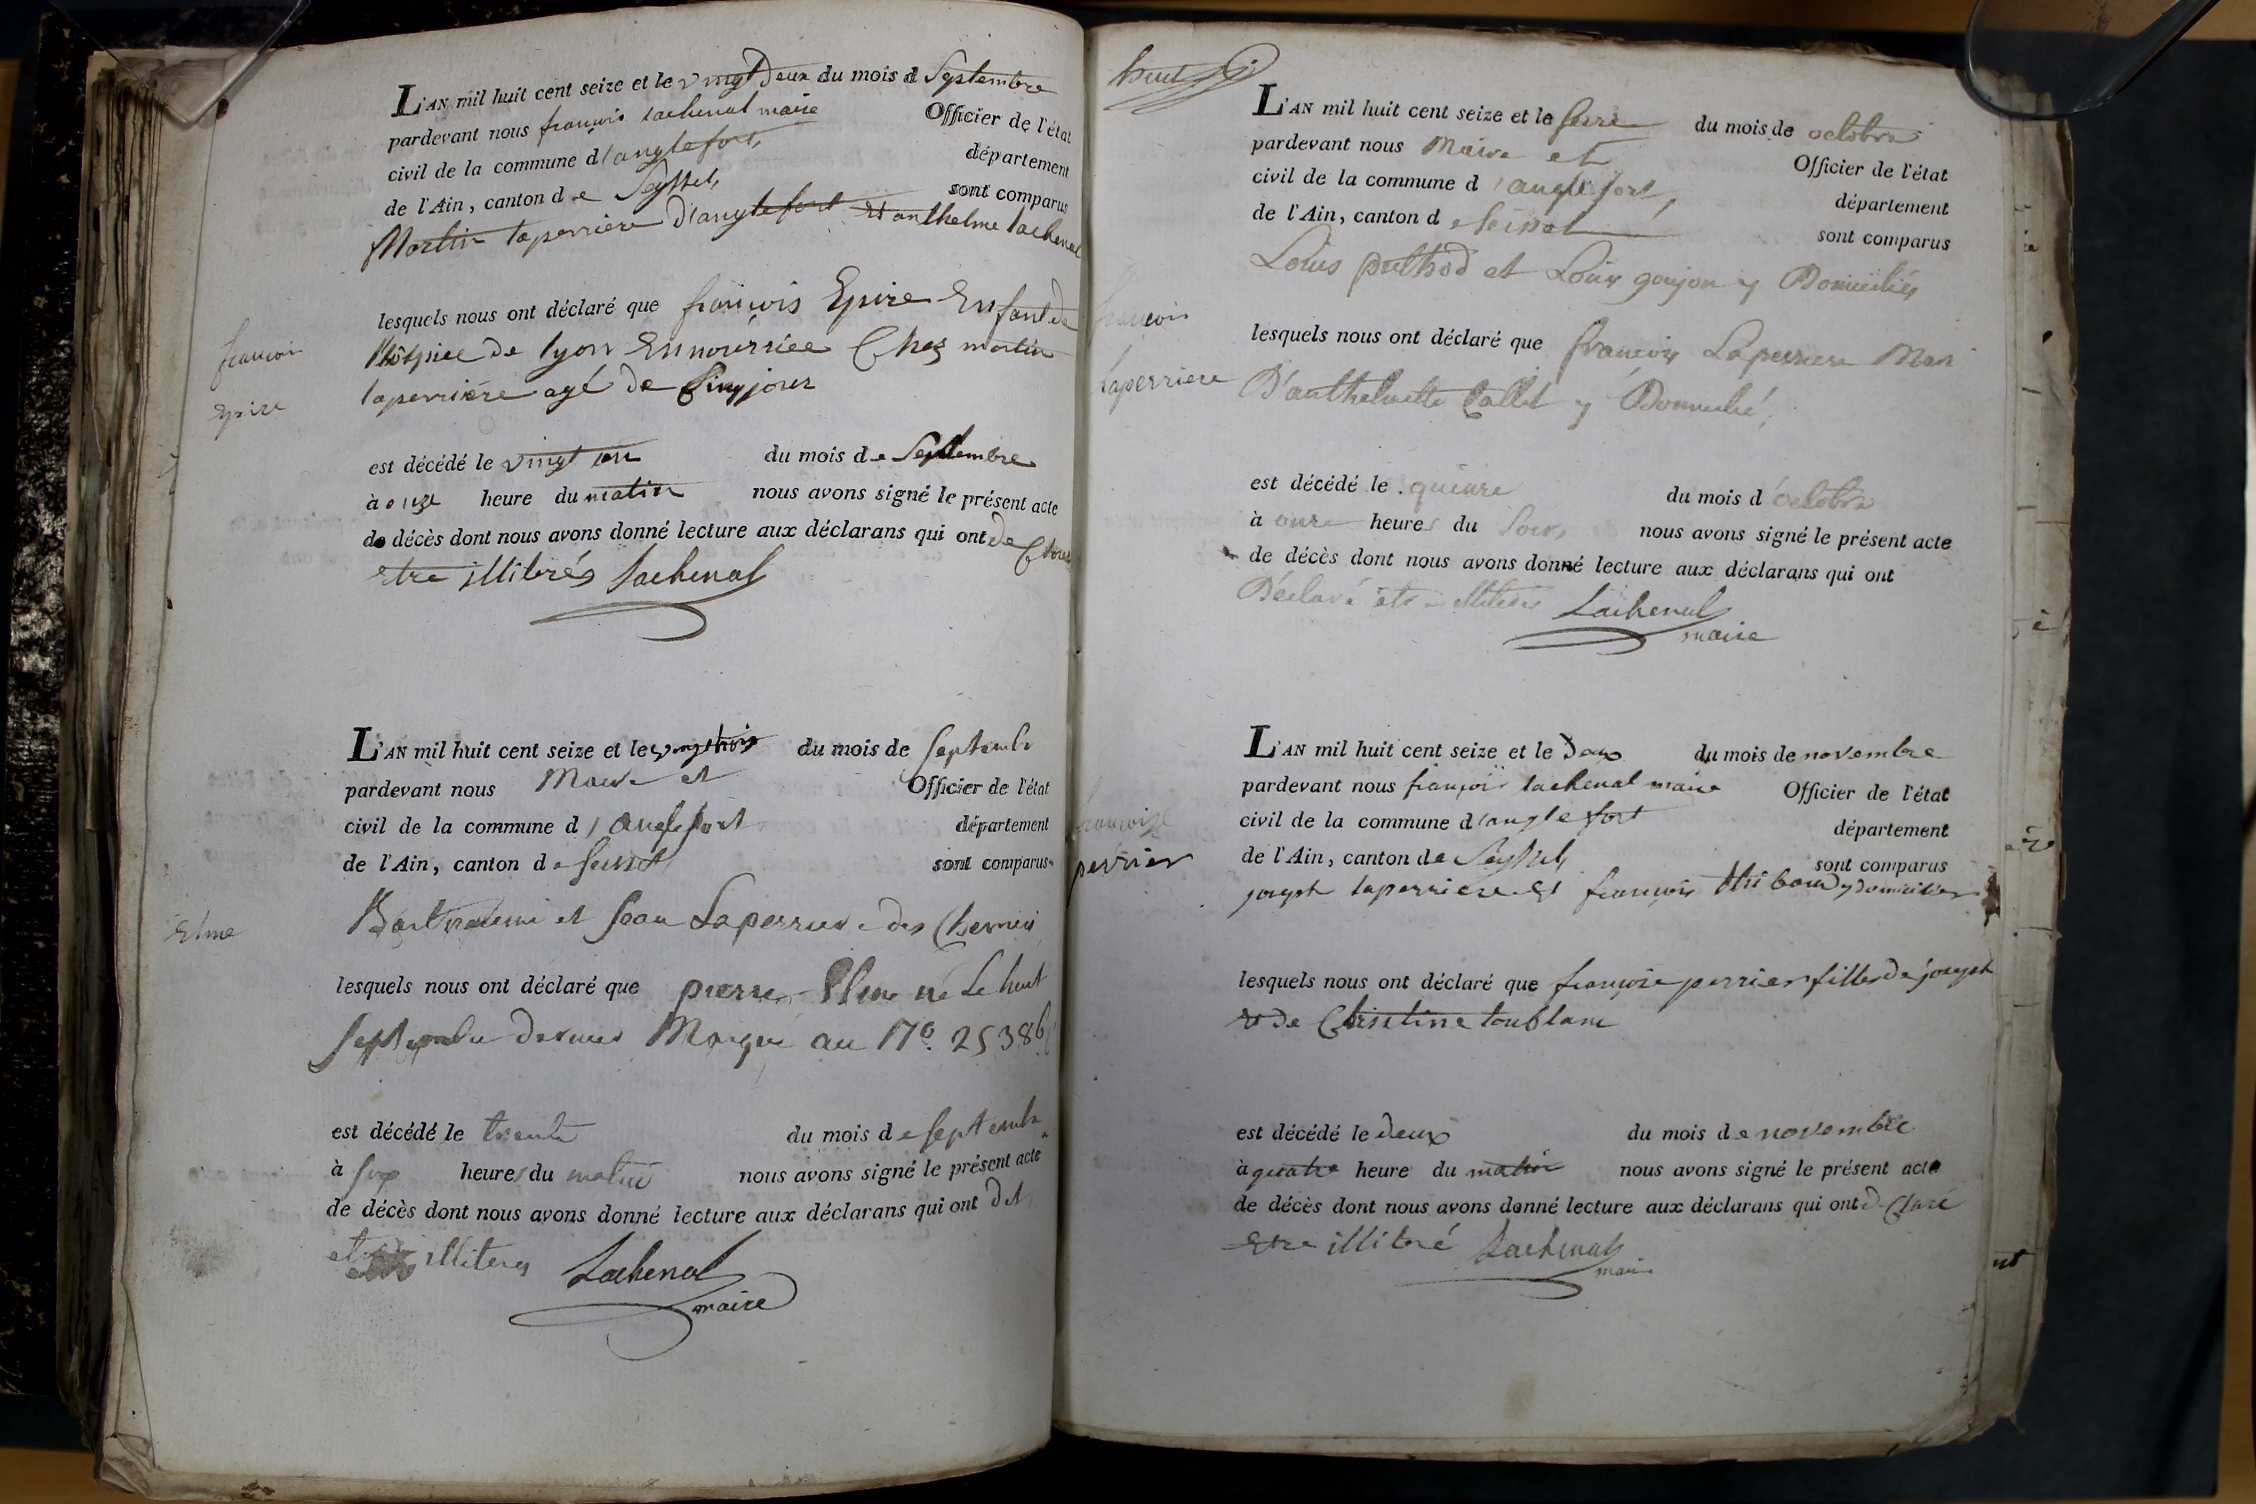 L'AN mil huit cent seize et le vingt deux du mois d Septembre
pardevant nous françois Lachenal maire Officier de l'état
civil de la commune d'anglefort, département
de l'Ain, canton de Seyssel, sont comparus
Martin laperrière d'anglefort et anthelme Lachenal
françois
Epire
lesquels nous ont déclaré que françois Epire Enfant de
l'hôspice de lyon En nourriee Chez martin
laperrière agé de Cinq jours
est décédé le vingt un du mois de Septembre
à onze heure du matin nous avons signé le présent acte
de décès dont nous avons donné lecture aux déclarans qui ont de Claré
etre illitérés Lachenal
L'AN mil huit cent seize et le du mois de septembre
pardevant nous Maire et Officier de l'état
civil de la commune d'anglefort département
de l'Ain, canton de sont comparus
et Jean Laperriere des
Elme
lesquels nous ont déclaré que pierre Elme né Le huit
Septembre dernier Marqué au N° 25386
est décédé le trente du mois de septembre
à six heures du matin nous avons signé le présent acte
de décès dont nous avons donné lecture aux déclarans qui ont dit
illiteres Lachenal
maire
huit
L'AN mil huit cent seize et le seize du mois de octobre
pardevant nous Maire et Officier de l'état
civil de la commune d'anglefort, département
de l'Ain, canton de seissel sont comparus
Louis puthod et Louis goujon y Domiciliés
françois
laperriere
lesquels nous ont déclaré que françois Laperriere Mari
D'anthelmette Callet y Domicilié,
est décédé le quinze du mois d'octobre
à onze heures du Soir, nous avons signé le présent acte
de décès dont nous avons donné lecture aux déclarans qui ont
Déclaré etre illiteres Lachenal
maire
L'AN mil huit cent seize et le Deux du mois de novembre
pardevant nous françois Lachenal maire Officier de l'état
civil de la commune d'anglefort département
de l'Ain, canton de Seyssel, sont comparus
joseph laperriere et françois thibaud y domiciliés
françoise
perrier
lesquels nous ont déclaré que françoise perrier fille de joseph
et de Christine toublanc
est décédé le deux du mois de novembre
à quatre heure du matin nous avons signé le présent acte
de décès dont nous avons donné lecture aux déclarans qui ont de Claré
Etre illiteré Lachenal
maire